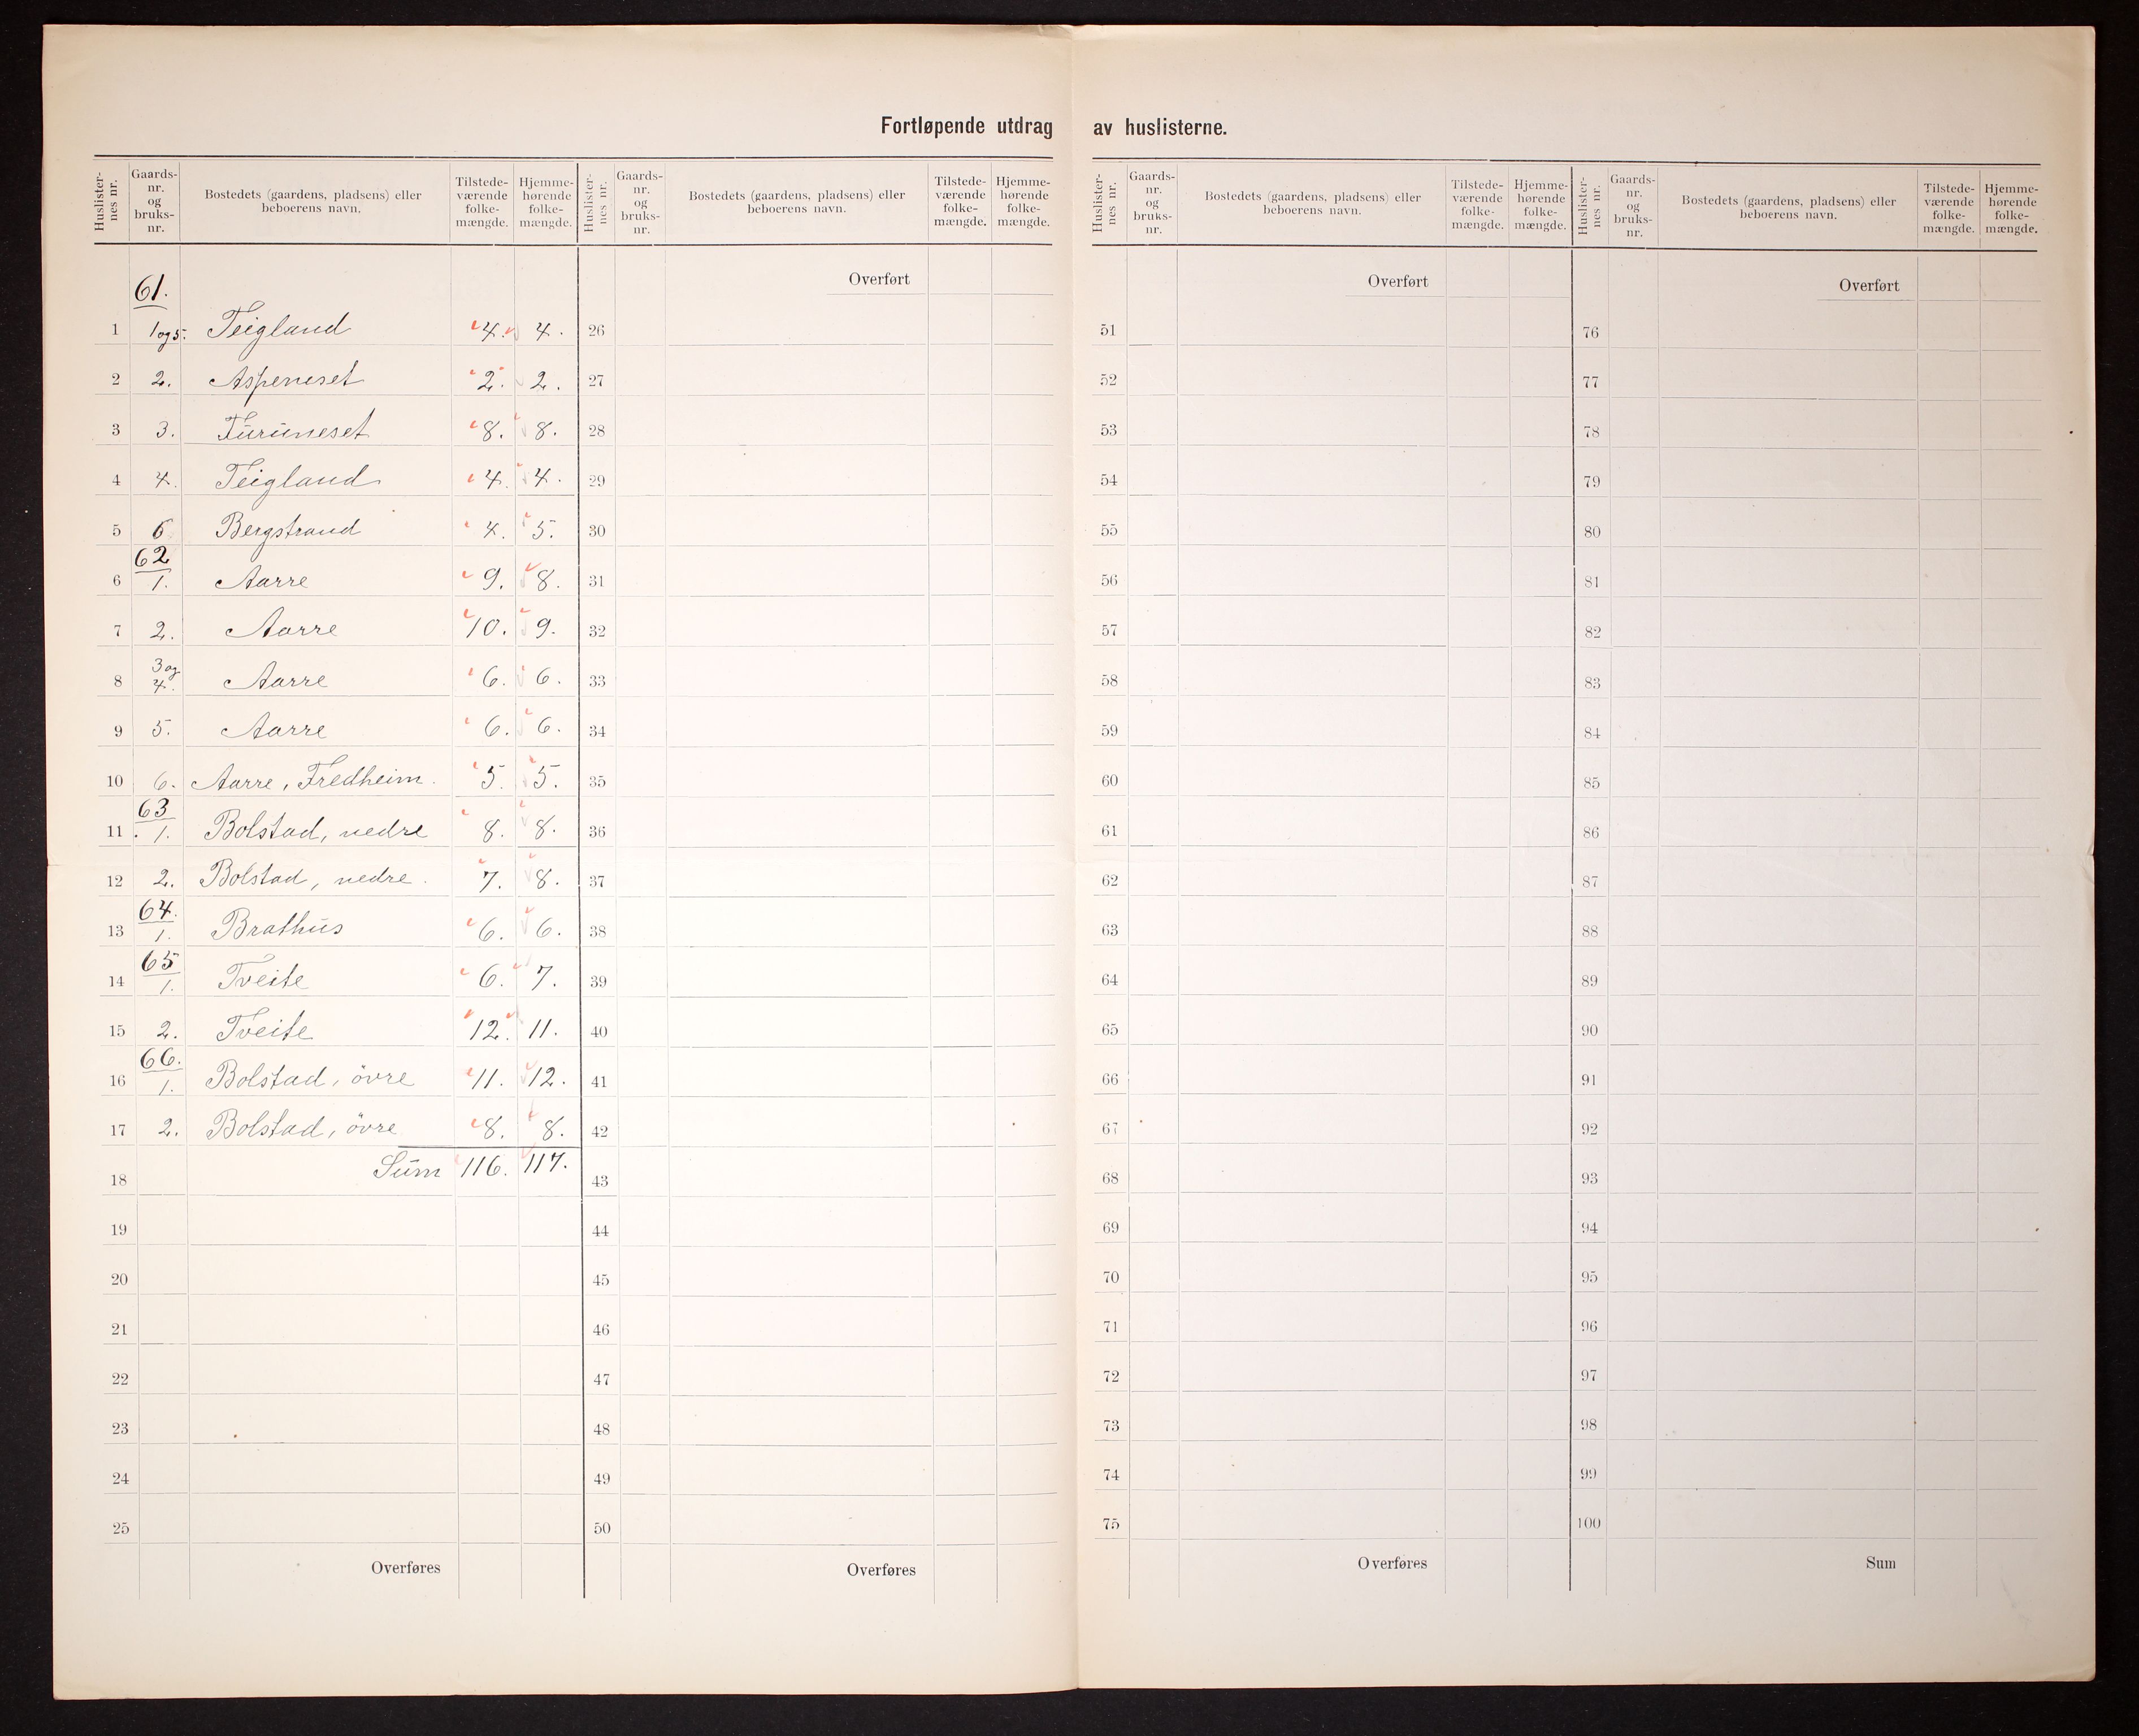 Fortløpende utdrag av huslisterne.
Huslister-nes nr. Gaards-nr. og bruks-nr. Bostedets (gaardens, pladsens) eller beboerens navn. Tilstede-værende folke-mængde. Hjemme-hørende folke-mængde. Huslister-nes nr. Gaards-nr. og bruks-nr. Bostedets (gaardens, pladsens) eller beboerens navn. Tilstede-værende folke-mængde. Hjemme-hørende folke-mængde. Huslister-nes nr. Gaards-nr. og bruks-nr. Bostedets (gaardens, pladsens) eller beboerens navn. Tilstede-værende folke-mængde. Hjemme-hørende folke-mængde. Huslister-nes nr. Gaards-nr. og bruks-nr. Bostedets (gaardens, pladsens) eller beboerens navn. Tilstede-værende folke-mængde. Hjemme-hørende folke-mængde.
61. Overført Overført Overført
1 1 og 5. Teigland 4. 4. 26 51 76
2 2. Aspeneset 2. 2. 27 52 77
3 3. Furuneset 8. 8. 28 53 78
4 4. Teigland 4. 4. 29 54 79
5 6 Bergstrand 4. 5. 30 55 80
62
6 1. Aarre 9. 8. 31 56 81
7 2. Aarre 10. 9. 32 57 82
8 3 og 4. Aarre 6. 6. 33 58 83
9 5. Aarre 6. 6. 34 59 84
10 6. Aarre, Fredheim. 5. 5. 35 60 85
63
11 1. Bolstad, nedre 8. 8. 36 61 86
12 2. Bolstad, nedre. 7. 8. 37 62 87
64.
13 1. Brathus 6. 6. 38 63 88
65
14 1. Tveite 6. 7. 39 64 89
15 2. Tveite 12. 11. 40 65 90
66.
16 1. Bolstad, övre 11. 12. 41 66 91
17 2. Bolstad, övre 8. 8. 42 67 92
18 Sum 116. 117. 43 68 93
19 44 69 94
20 45 70 95
21 46 71 96
22 47 72 97
23 48 73 98
24 49 74 99
25 50 75 100
Overføres Overføres Overføres Sum